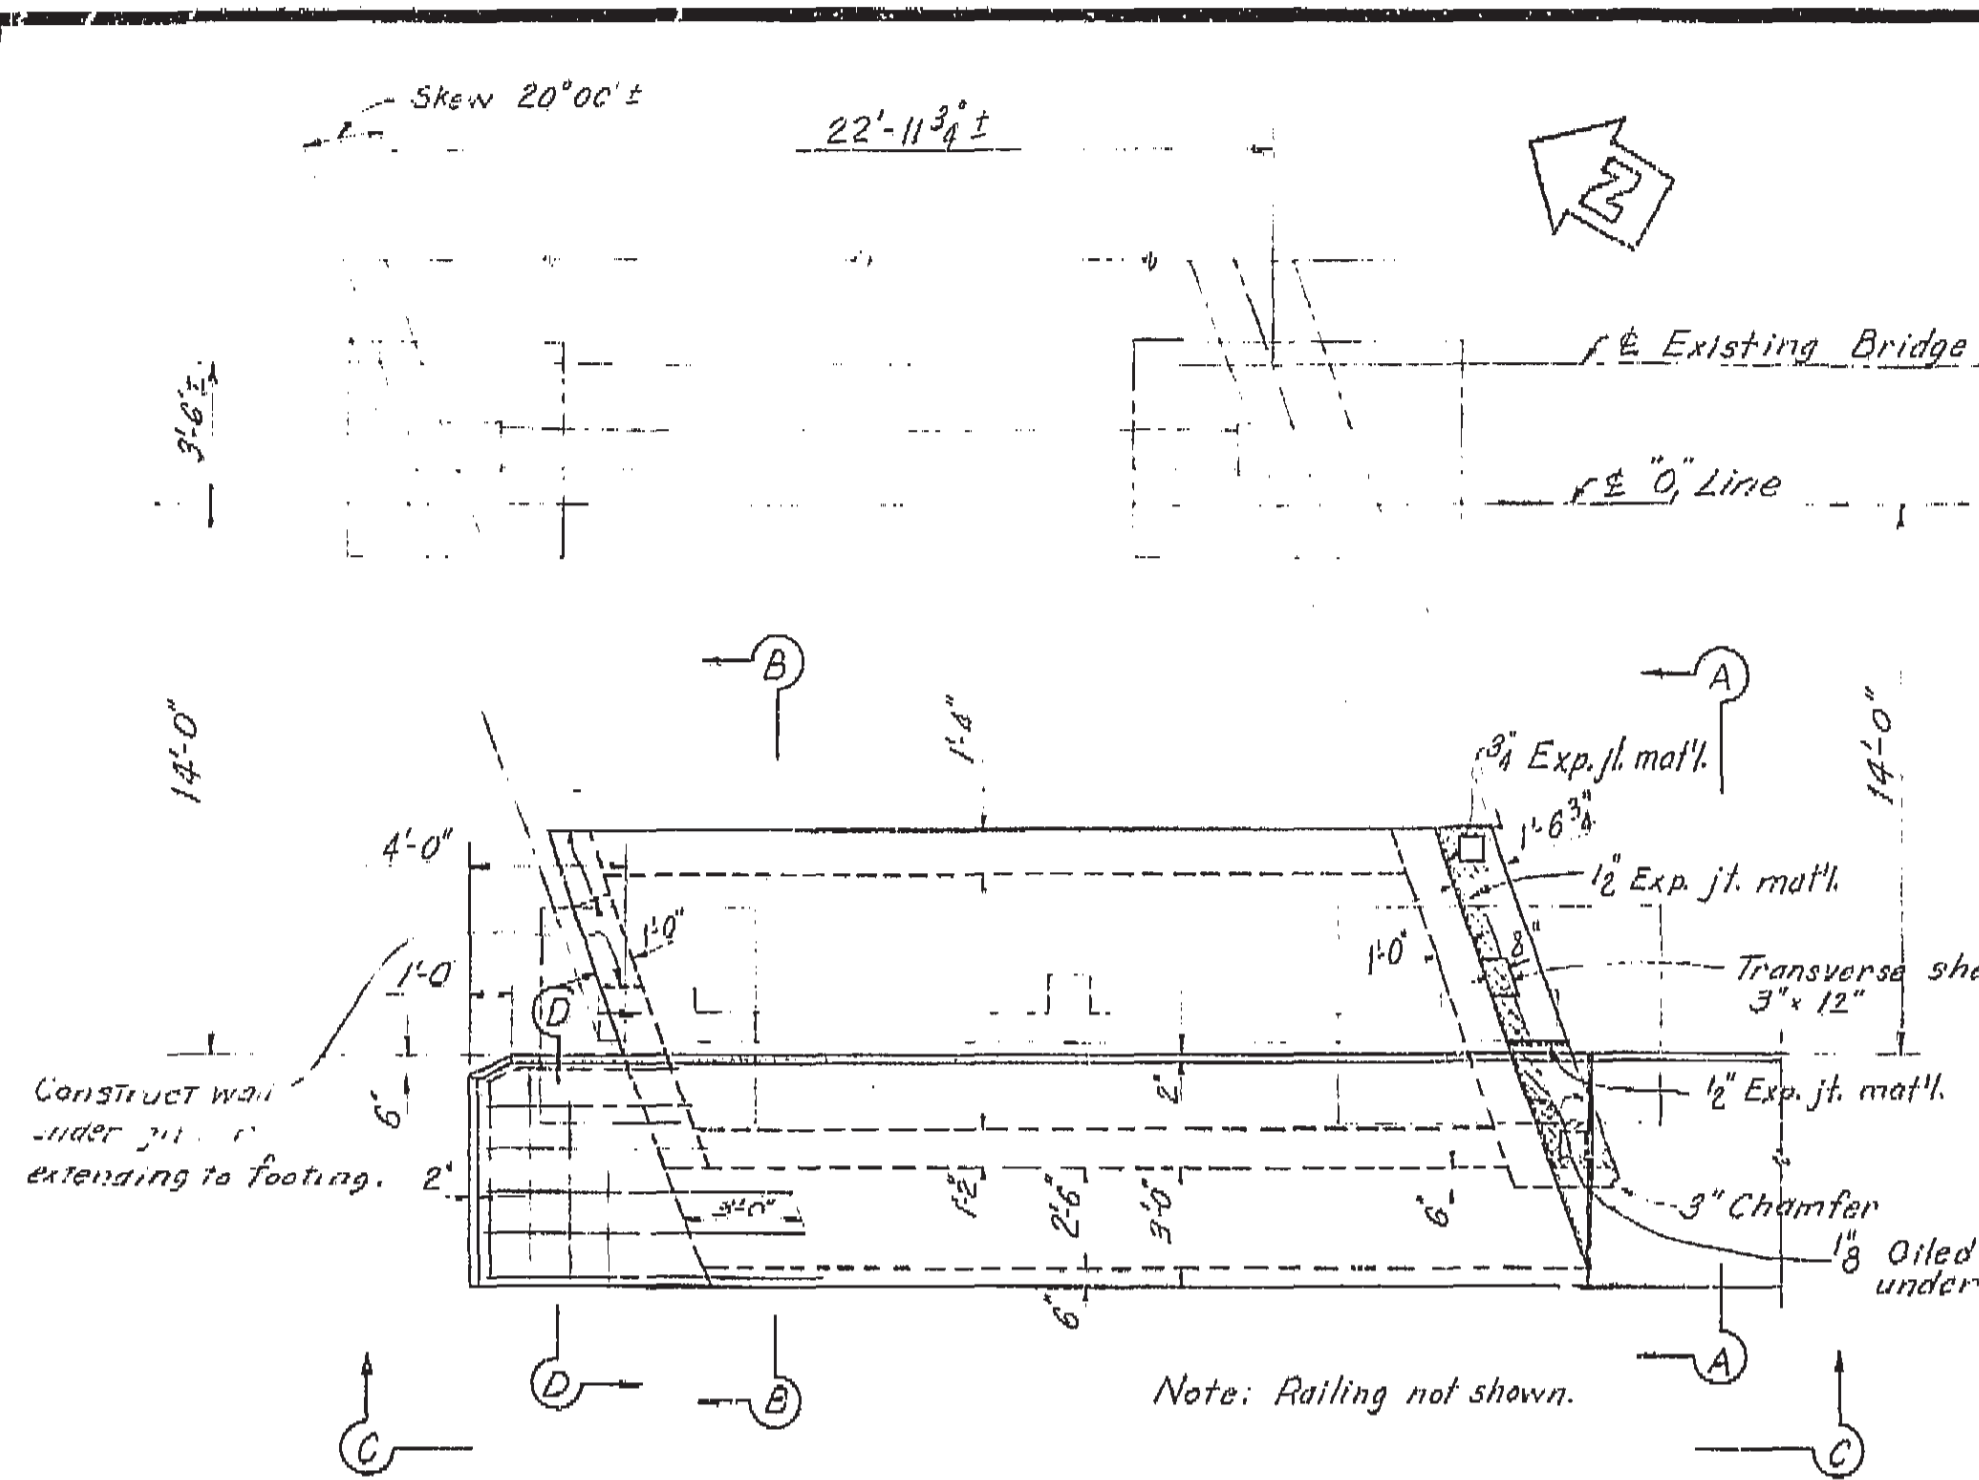 Skew 20°00' ±
22'-11 3/4" ±
N
℄ Existing Bridge
3'-6" ±
℄ "O" Line
B
A
14'-0"
1'-4"
14'-0"
3/4" Exp. jt. mat'l.
1'-6 3/4"
4'-0"
1/2" Exp. jt. mat'l.
1'-0"
1'-0"
8"
1'-0"
Transverse
3" x 12"
D
Construct
under
extending to footing.
6"
2"
1/2" Exp. jt. mat'l.
2"
3'-0"
1'-2"
2'-6"
3'-0"
6"
3" Chamfer
1/8" Oiled
under
6"
D
B
A
Note: Railing not shown.
C
C